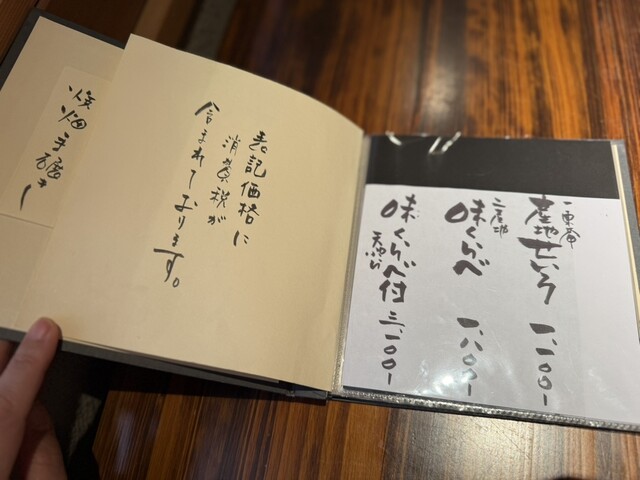 産地せいろ 一、一〇〇ー
二産地
味くらべ 一、八〇〇ー
味くらべ
天ぷら
付 三、一〇〇ー
表記価格に
消費税が
含まれております。
焼畑
手碾き